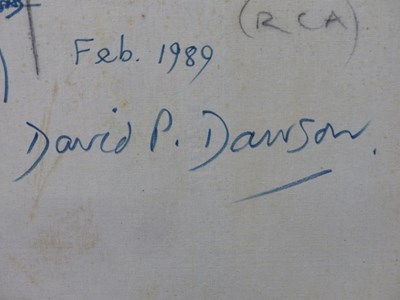 (RCA)
Feb. 1989
David P. Dawson.